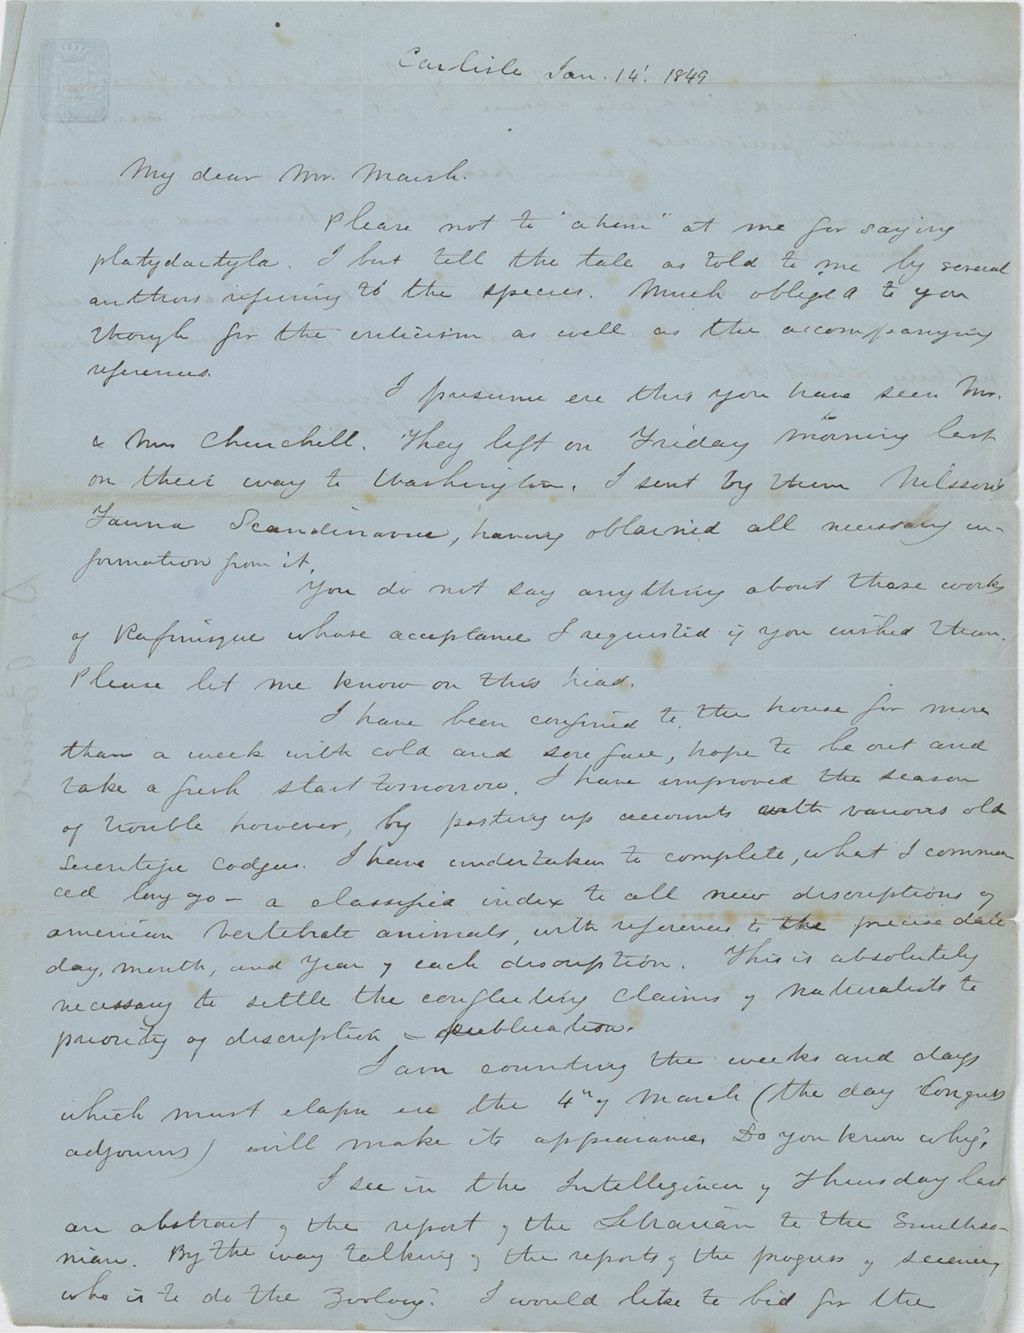 Carlisle Jan. 14. 1849
My dear Mr. Marsh.
Please not to "ahem" at me for saying
platydactyla. I but tell the tale as told to me by several
authors referring to the species. Much obliged to you
though for the criticism as well as the accompanying
references.
I presume ere this you have seen Mr.
& Mrs Churchill. They left on Friday morning last
on their way to Washington. I sent by them Nilsson's
Fauna Scandinavica, having obtained all necessary in-
formation from it.
You do not say anything about those works
of Rafinisque whose acceptance I requested if you wished them.
Please let me know on this head.
I have been confined to the house for more
than a week with cold and sore face, hope to be out and
take a fresh start tomorrow. I have improved the season
of trouble however, by posting up accounts with various old
scientific codgers. I have undertaken to complete, what I commen-
ced long ago - a classified index to all new descriptions of
american vertebrate animals, with references to the precise date
day, month, and year of each description. This is absolutely
necessary to settle the conflicting claims of naturalists to
priority of description & publication.
I am counting the weeks and days
which must elapse ere the 4th of March (the day Congress
adjourns) will make its appearance. Do you know why?
I see in the Intelligencer of Thursday last
an abstract of the report of the Librarian to the Smithso-
nian. By the way talking of the reports of the progress of science,
who is to do the Zoology? I would like to bid for the